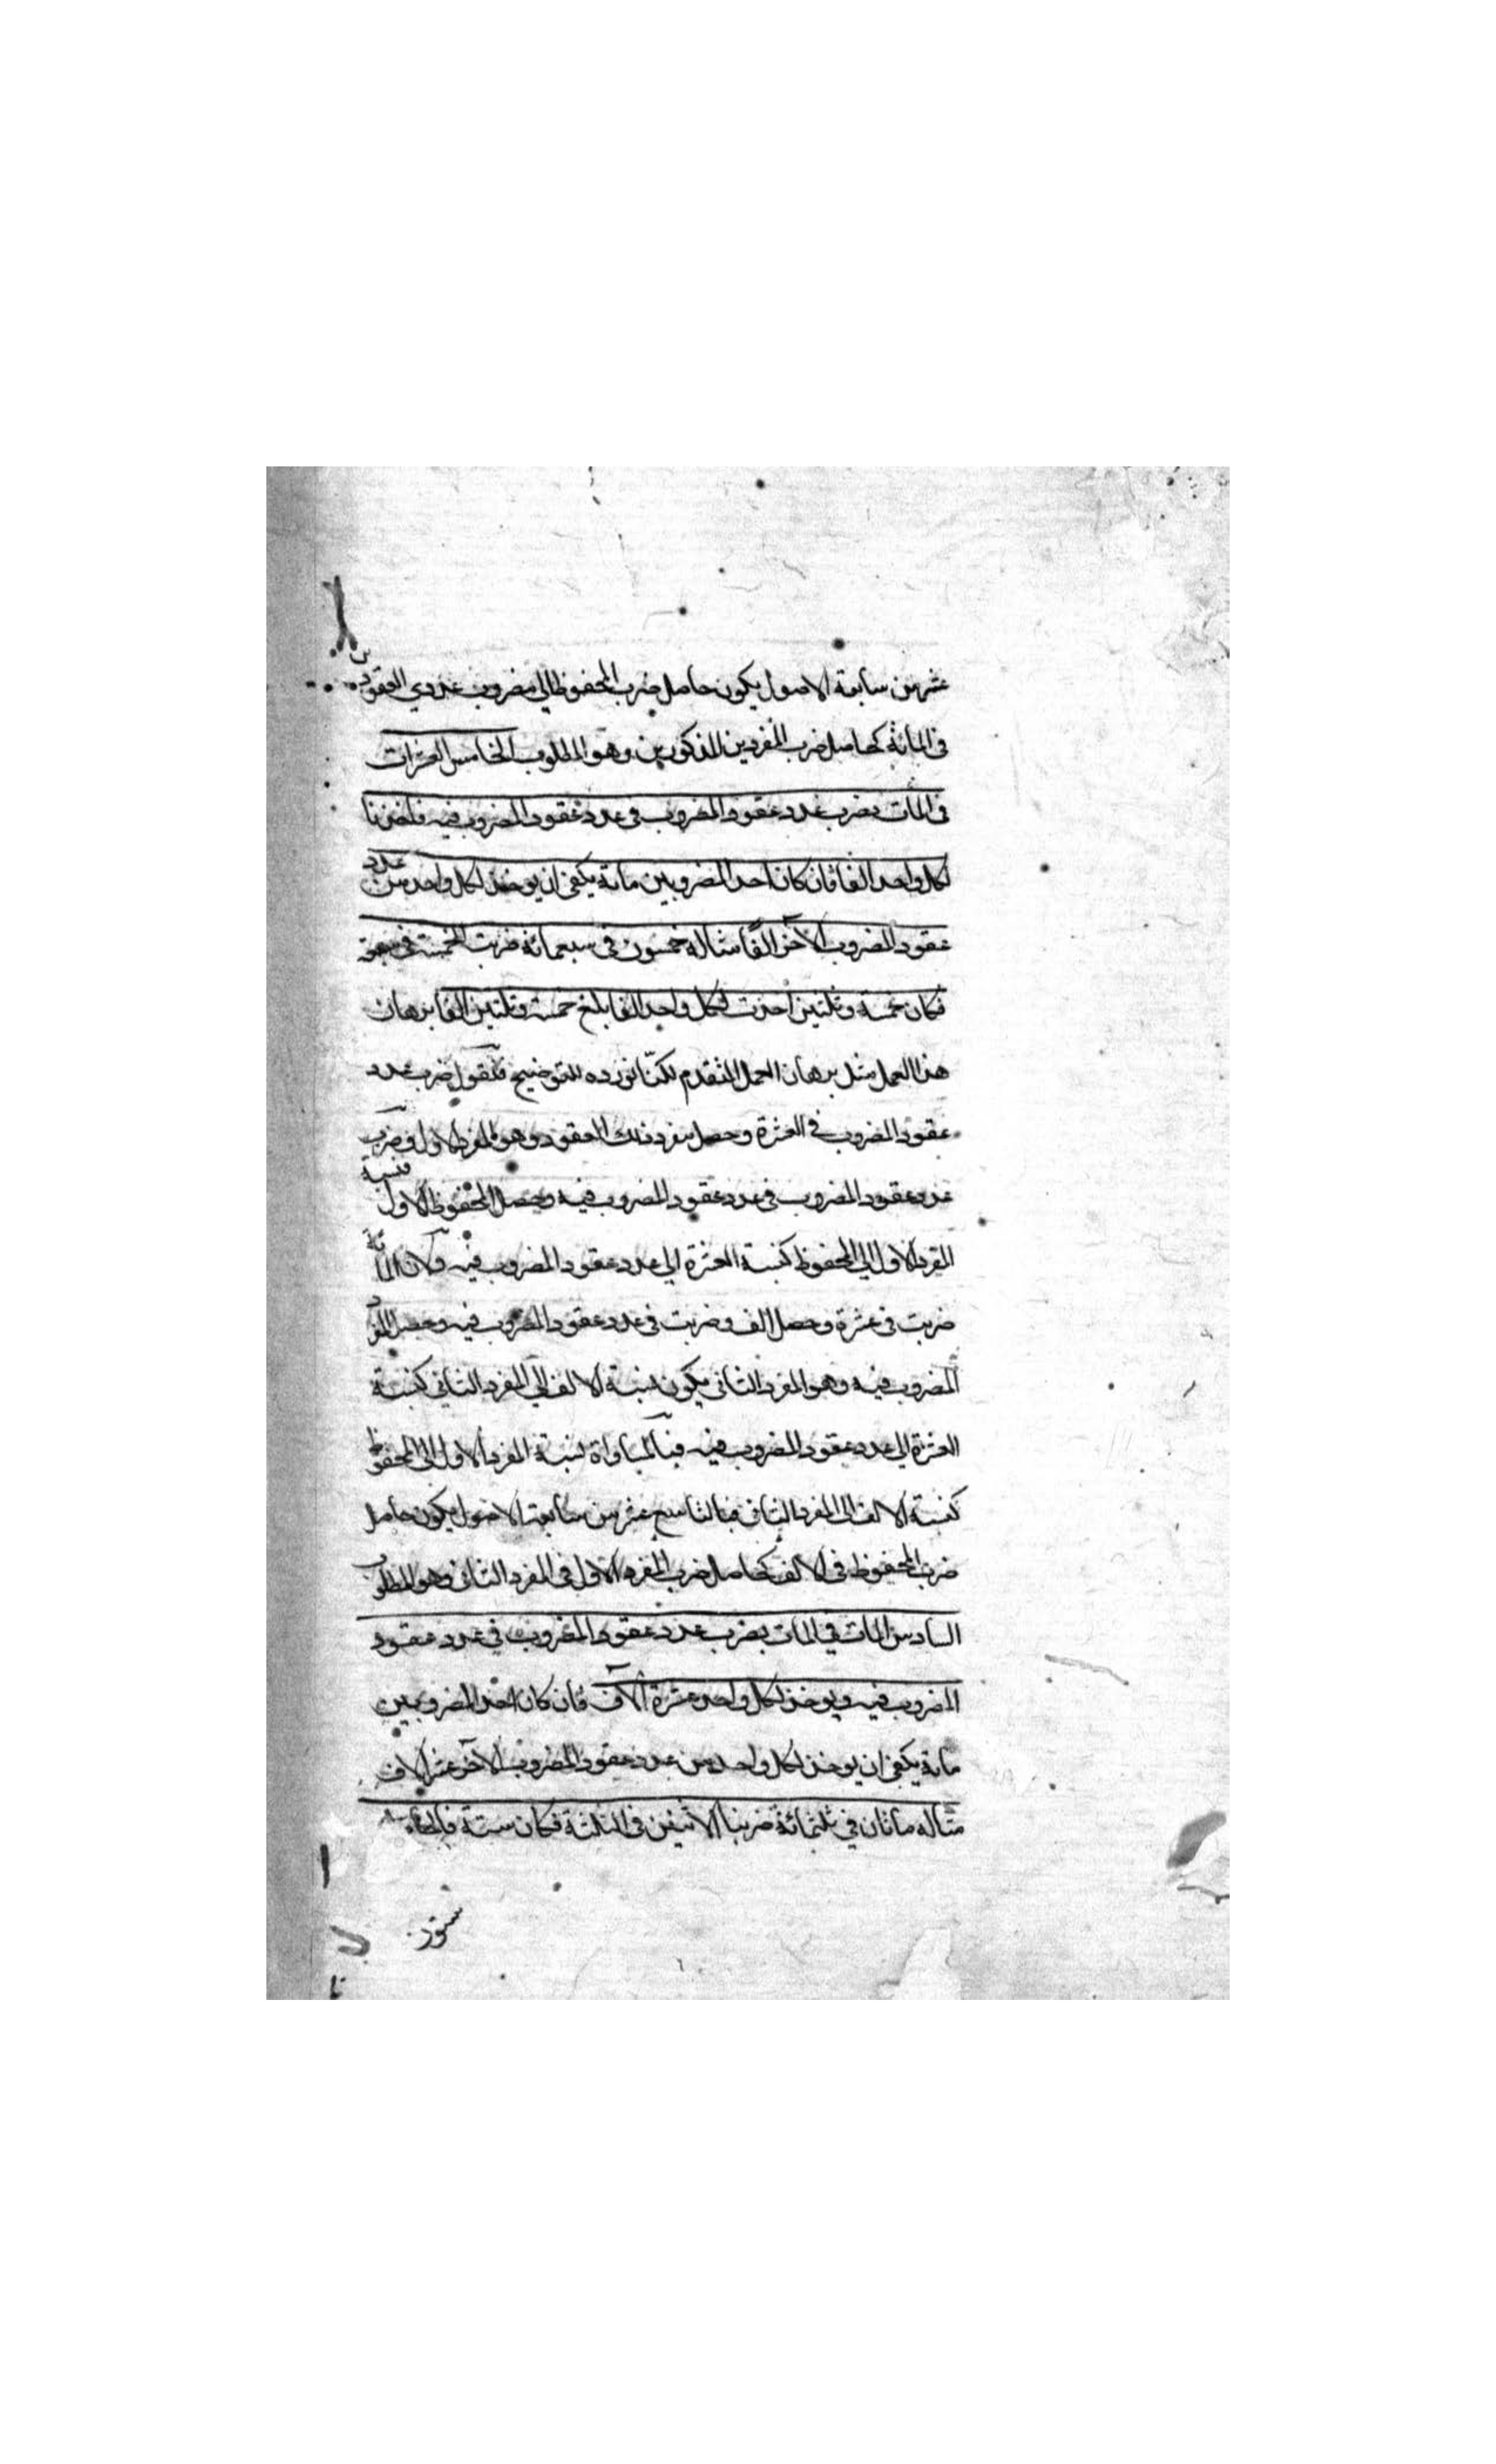 عشر من سابعة الاصول يكون حاصل ضرب المحفوظ اي مضروب عددي العقودين
في المائة كحاصل ضرب المفردين المذكورين وهو المطلوب الخامس العشرات
في المات يضرب عدد عقود المضروب في عدد عقود المضروب فيه
لكل واحد الفا فان كان احد المضروبين مائة يكفي ان يوخذ لكل واحد من عدد
عقود المضروب الآخر الفًا مثاله خمسون في سبعمائة ضربت الخمسة في
فكان خمسة وثلثين اخذت لكل واحد الفا بلغ خمسة وثلثين الفا برهان
هذا العمل مثل برهان العمل المتقدم لكنّا نورده للتوضيح فنقول ضرب عدد
عقود المضروب في العشرة وحصل مفرد تلك العقود وهو المفرد الاول وضرب
عدد عقود المضروب في عدد عقود المضروب فيه وحصل المحفوظ الاول فنسبة
المفرد الاول الي المحفوظ كنسبة العشرة الي عدد عقود المضروب فيه ولان المائة
ضربت في عشرة وحصل الف وضربت في عدد عقود المضروب فيه وحصل المفرد
المضروب فيه وهو المفرد الثاني يكون نسبة الالف الي المفرد الثاني كنسبة
العشرة الي عدد عقود المضروب فيه فبالمساواة نسبة المفرد الاول الي المحفوظ
كنسبة الالف الى المفرد الثاني فبالتاسع عشر من سابعة الاصول يكون حاصل
ضرب المحفوظ في الالف كحاصل ضرب المفرد الاول في المفرد الثاني وهو المطلوب
السادس المات في المات يضرب عدد عقود المضروب في عدد عقود
المضروب فيه ويوخذ لكل واحد عشرة آلاف فان كان احد المضروبين
مائة يكفي ان يوخذ لكل واحد من عدد عقود المضروب الآخر عشرة الاف
مثاله مأتان في ثلثمائة ضربنا الاثنين في الثلثة فكان ستة
ستون